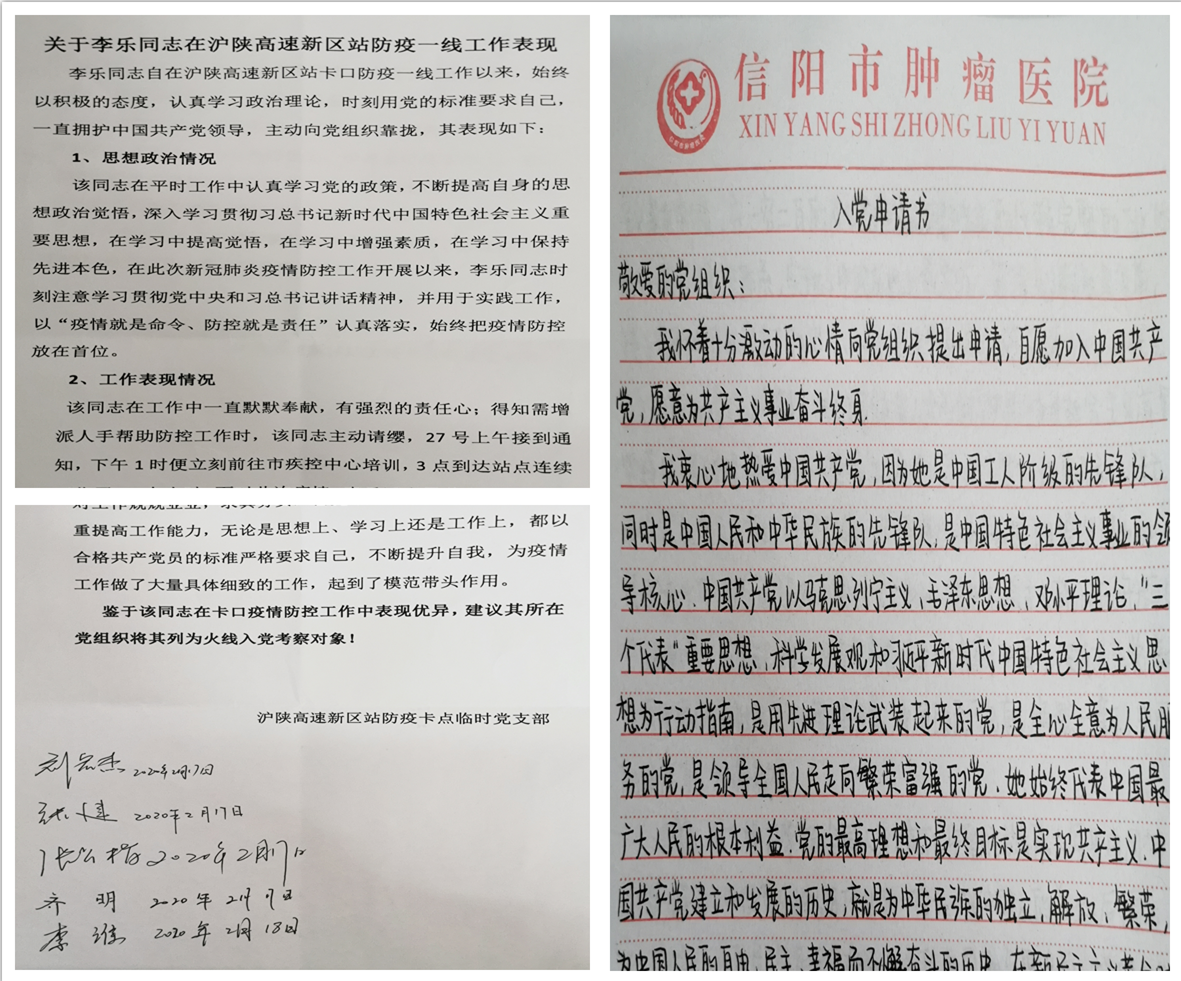 关于李乐同志在沪陕高速新区站防疫一线工作表现
李乐同志自在沪陕高速新区站卡口防疫一线工作以来，始终
以积极的态度，认真学习政治理论，时刻用党的标准要求自己，
一直拥护中国共产党领导，主动向党组织靠拢，其表现如下：
1、思想政治情况
该同志在平时工作中认真学习党的政策，不断提高自身的思
想政治觉悟，深入学习贯彻习总书记新时代中国特色社会主义重
要思想，在学习中提高觉悟，在学习中增强素质，在学习中保持
先进本色，在此次新冠肺炎疫情防控工作开展以来，李乐同志时
刻注意学习贯彻党中央和习总书记讲话精神，并用于实践工作，
以“疫情就是命令、防控就是责任”认真落实，始终把疫情防控
放在首位。
2、工作表现情况
该同志在工作中一直默默奉献，有强烈的责任心；得知需增
派人手帮助防控工作时，该同志主动请缨，27号上午接到通
知，下午1时便立刻前往市疾控中心培训，3点到达站点连续
对工作兢兢业业，
重提高工作能力，无论是思想上、学习上还是工作上，都以
合格共产党员的标准严格要求自己，不断提升自我，为疫情
工作做了大量具体细致的工作，起到了模范带头作用。
鉴于该同志在卡口疫情防控工作中表现优异，建议其所在
党组织将其列为火线入党考察对象！
沪陕高速新区站防疫卡点临时党支部
2020年2月17日
2020年2月17日
2020年2月17日
齐明 2020年2月17日
李 2020年2月18日
信阳市肿瘤医院
XIN YANG SHI ZHONG LIU YI YUAN
入党申请书
敬爱的党组织：
我怀着十分激动的心情向党组织提出申请，自愿加入中国共产
党，愿意为共产主义事业奋斗终身.
我衷心地热爱中国共产党，因为她是中国工人阶级的先锋队，
同时是中国人民和中华民族的先锋队，是中国特色社会主义事业的领
导核心.中国共产党以马克思列宁主义、毛泽东思想、邓小平理论、“三
个代表”重要思想、科学发展观和习近平新时代中国特色社会主义思
想为行动指南，是用先进理论武装起来的党，是全心全意为人民服
务的党，是领导全国人民走向繁荣富强的党.她始终代表中国最
广大人民的根本利益.党的最高理想和最终目标是实现共产主义.中
国共产党建立和发展的历史，就是为中华民族的独立、解放、繁荣，
为中国人民的自由、民主、幸福而不懈奋斗的历史.在新民主主义革命